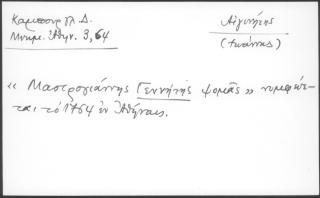 Καμπούρογλ. Δ.
Μνημ. Ἀθην. 3, 64
Αἰγινήτης
(Ἰωάννης)
« Μαστρογιάννης Γεννήτης ψωμᾶς » νυμφεύε-
ται τὸ 1764 ἐν Ἀθήναις.